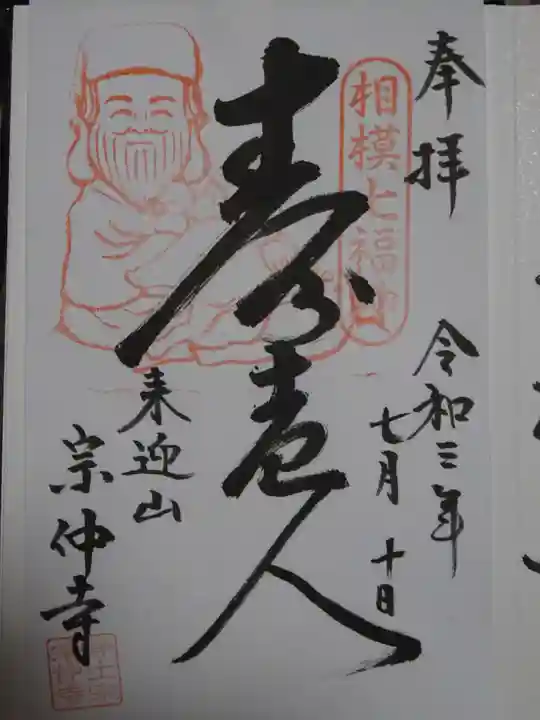 奉拝
令和三年
七月十日
相模七福神
寿老人
来迎山
宗仲寺